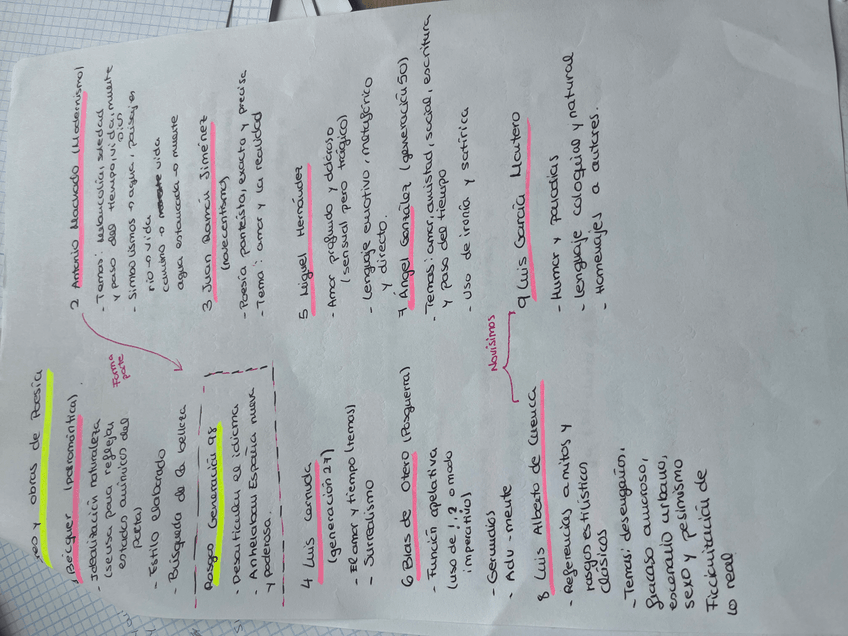 y obras de Poesía
1 Bécquer (posromántica)
- Idealización naturaleza
(se usa para reflejar
estados anímicos del
poeta)
- Estilo elaborado
- Búsqueda de la belleza
Forma
parte
2 Antonio Machado (Modernismo)
- Temas: melancolía, soledad
y paso del tiempo, vida, muerte
Dios
- Simbolismos → agua, paisajes
río → vida
camino → vida
agua estancada → muerte
Rasgo Generación 98
- Desarticulan el idioma
- Anhelaban España nueva
y poderosa.
3 Juan Ramón Jiménez
(novecentismo)
- Poesía panteísta, exacta y precisa
- Tema: amor y la realidad
4 Luis Cernuda
(generación 27)
- El amor y tiempo (temas)
- Surrealismo
5 Miguel Hernández
- Amor profundo y doloroso
(sensual pero trágico)
- Lenguaje emotivo, metafórico
y directo.
6 Blas de Otero (Posguerra)
- Función apelativa
(uso de ! ? o modo
imperativo)
- Gerundios
- Adv -mente
7 Ángel González (generación 50)
- Temas: amor, amistad, social, escritura
y paso del tiempo
- Uso de ironía y satírica
Novísimos
8 Luis Alberto de Cuenca
- Referencias a mitos y
rasgos estilísticos
clásicos
- Temas: desengaños,
fracaso amoroso,
escenario urbano,
sexo y pesimismo
Ficcionalización de
lo real
9 Luis García Montero
- Humor y parodias
- Lenguaje coloquial y natural
- Homenajes a autores.